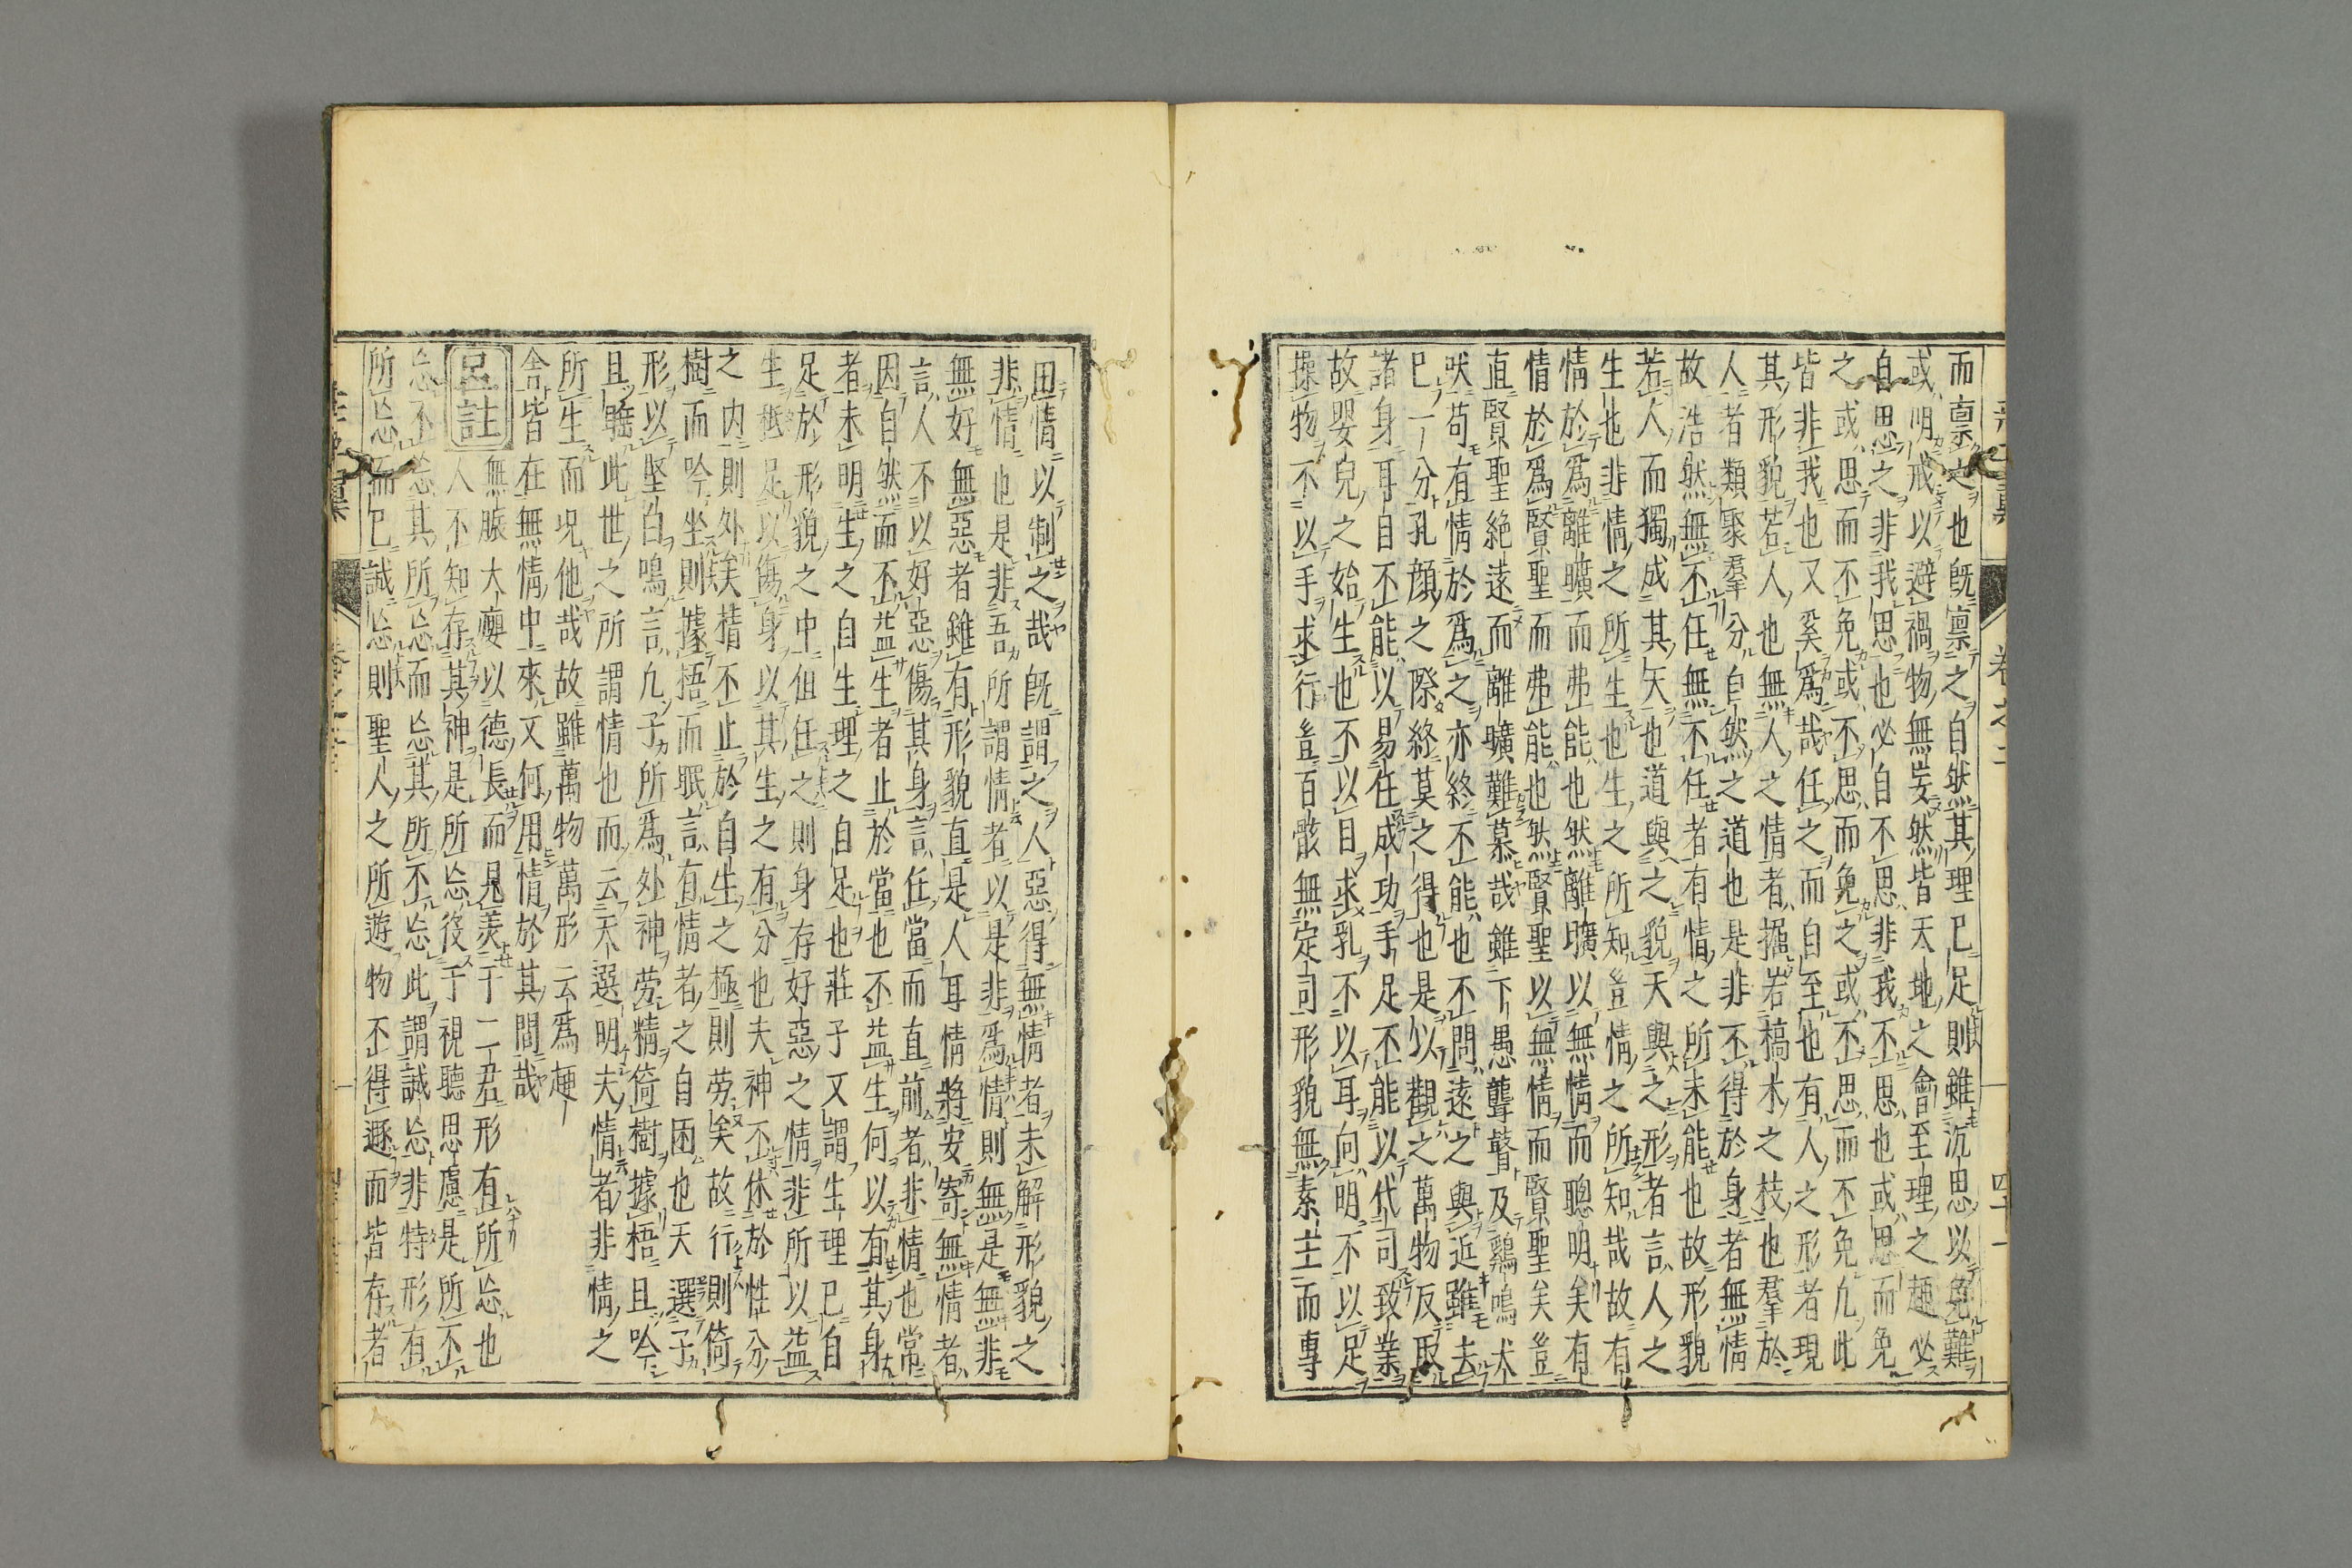 而稟之也旣稟之自然其理已足則雖沉思以免難
或明戒以避禍物無妄然皆天地之會至理之趣必
自思之非我思也必自不思非我不思也或思而免
之或思而不免或不思而免之或不思而不免凡此
皆非我也又奚爲哉任之而自至也有人之形者現
其形貌若人也無人之情者掘若槁木之枝也羣於
人者類聚羣分自然之道也是非不得於身者無情
故浩然無不任無不任者有情之所未能也故形貌
若人而獨成其天也道與之貌天與之形者言人之
生也非情之所生也生之所知豈情之所知哉故有
情於爲離曠而弗能也然離曠以無情而聰明矣有
情於爲賢聖而弗能也然賢聖以無情而賢聖矣豈
直賢聖絶遠而離曠難慕哉雖下愚聾瞽及鷄鳴犬
吠苟有情於爲之亦終不能也不問遠之與近雖去
已一分孔顔之際終莫之得也是以觀之萬物反取
諸身耳目不能以易任成功手足不能以代司致業
故嬰兒之始生也不以目求乳不以耳向明不以足
操物不以手求行豈百骸無定司形貌無素主而專
由情以制之哉旣謂之人惡得無情者未解形貌之
非情也是非吾所謂情者以是非爲情則無是無非
無好無惡者雖有形貌直是人耳情將安寄無情者
言人不以好惡傷其身言任當而直前者非情也常
因自然而不益生者止於當也不益生何以有其身
者未明生之自生理之自足也莊子又謂生理已自
足於形貌之中但任之則身存好惡之情非所以益
生秪足以傷身以其生之有分也夫神不休於性分
之内則外矣精不止於自生之極則勞矣故行則倚
樹而吟坐則據梧而眠言有情者之自困也天選子
形以堅白鳴言凡子所爲外神勞精倚樹據梧且吟
且睡此世之所謂情也而云天選明夫情者非情之
所生而況他哉故雖萬物萬形云爲趣
舍皆在無情中來又何用情於其間哉
呂註 無脤大癭以德長而見美于二君形有所忘也
人不知存其神是所忘役于視聽思慮是所不
忘不忘其所忘而忘其所不忘此謂誠忘非特形有
所忘而已誠忘則聖人之所遊物不得遯而皆存者